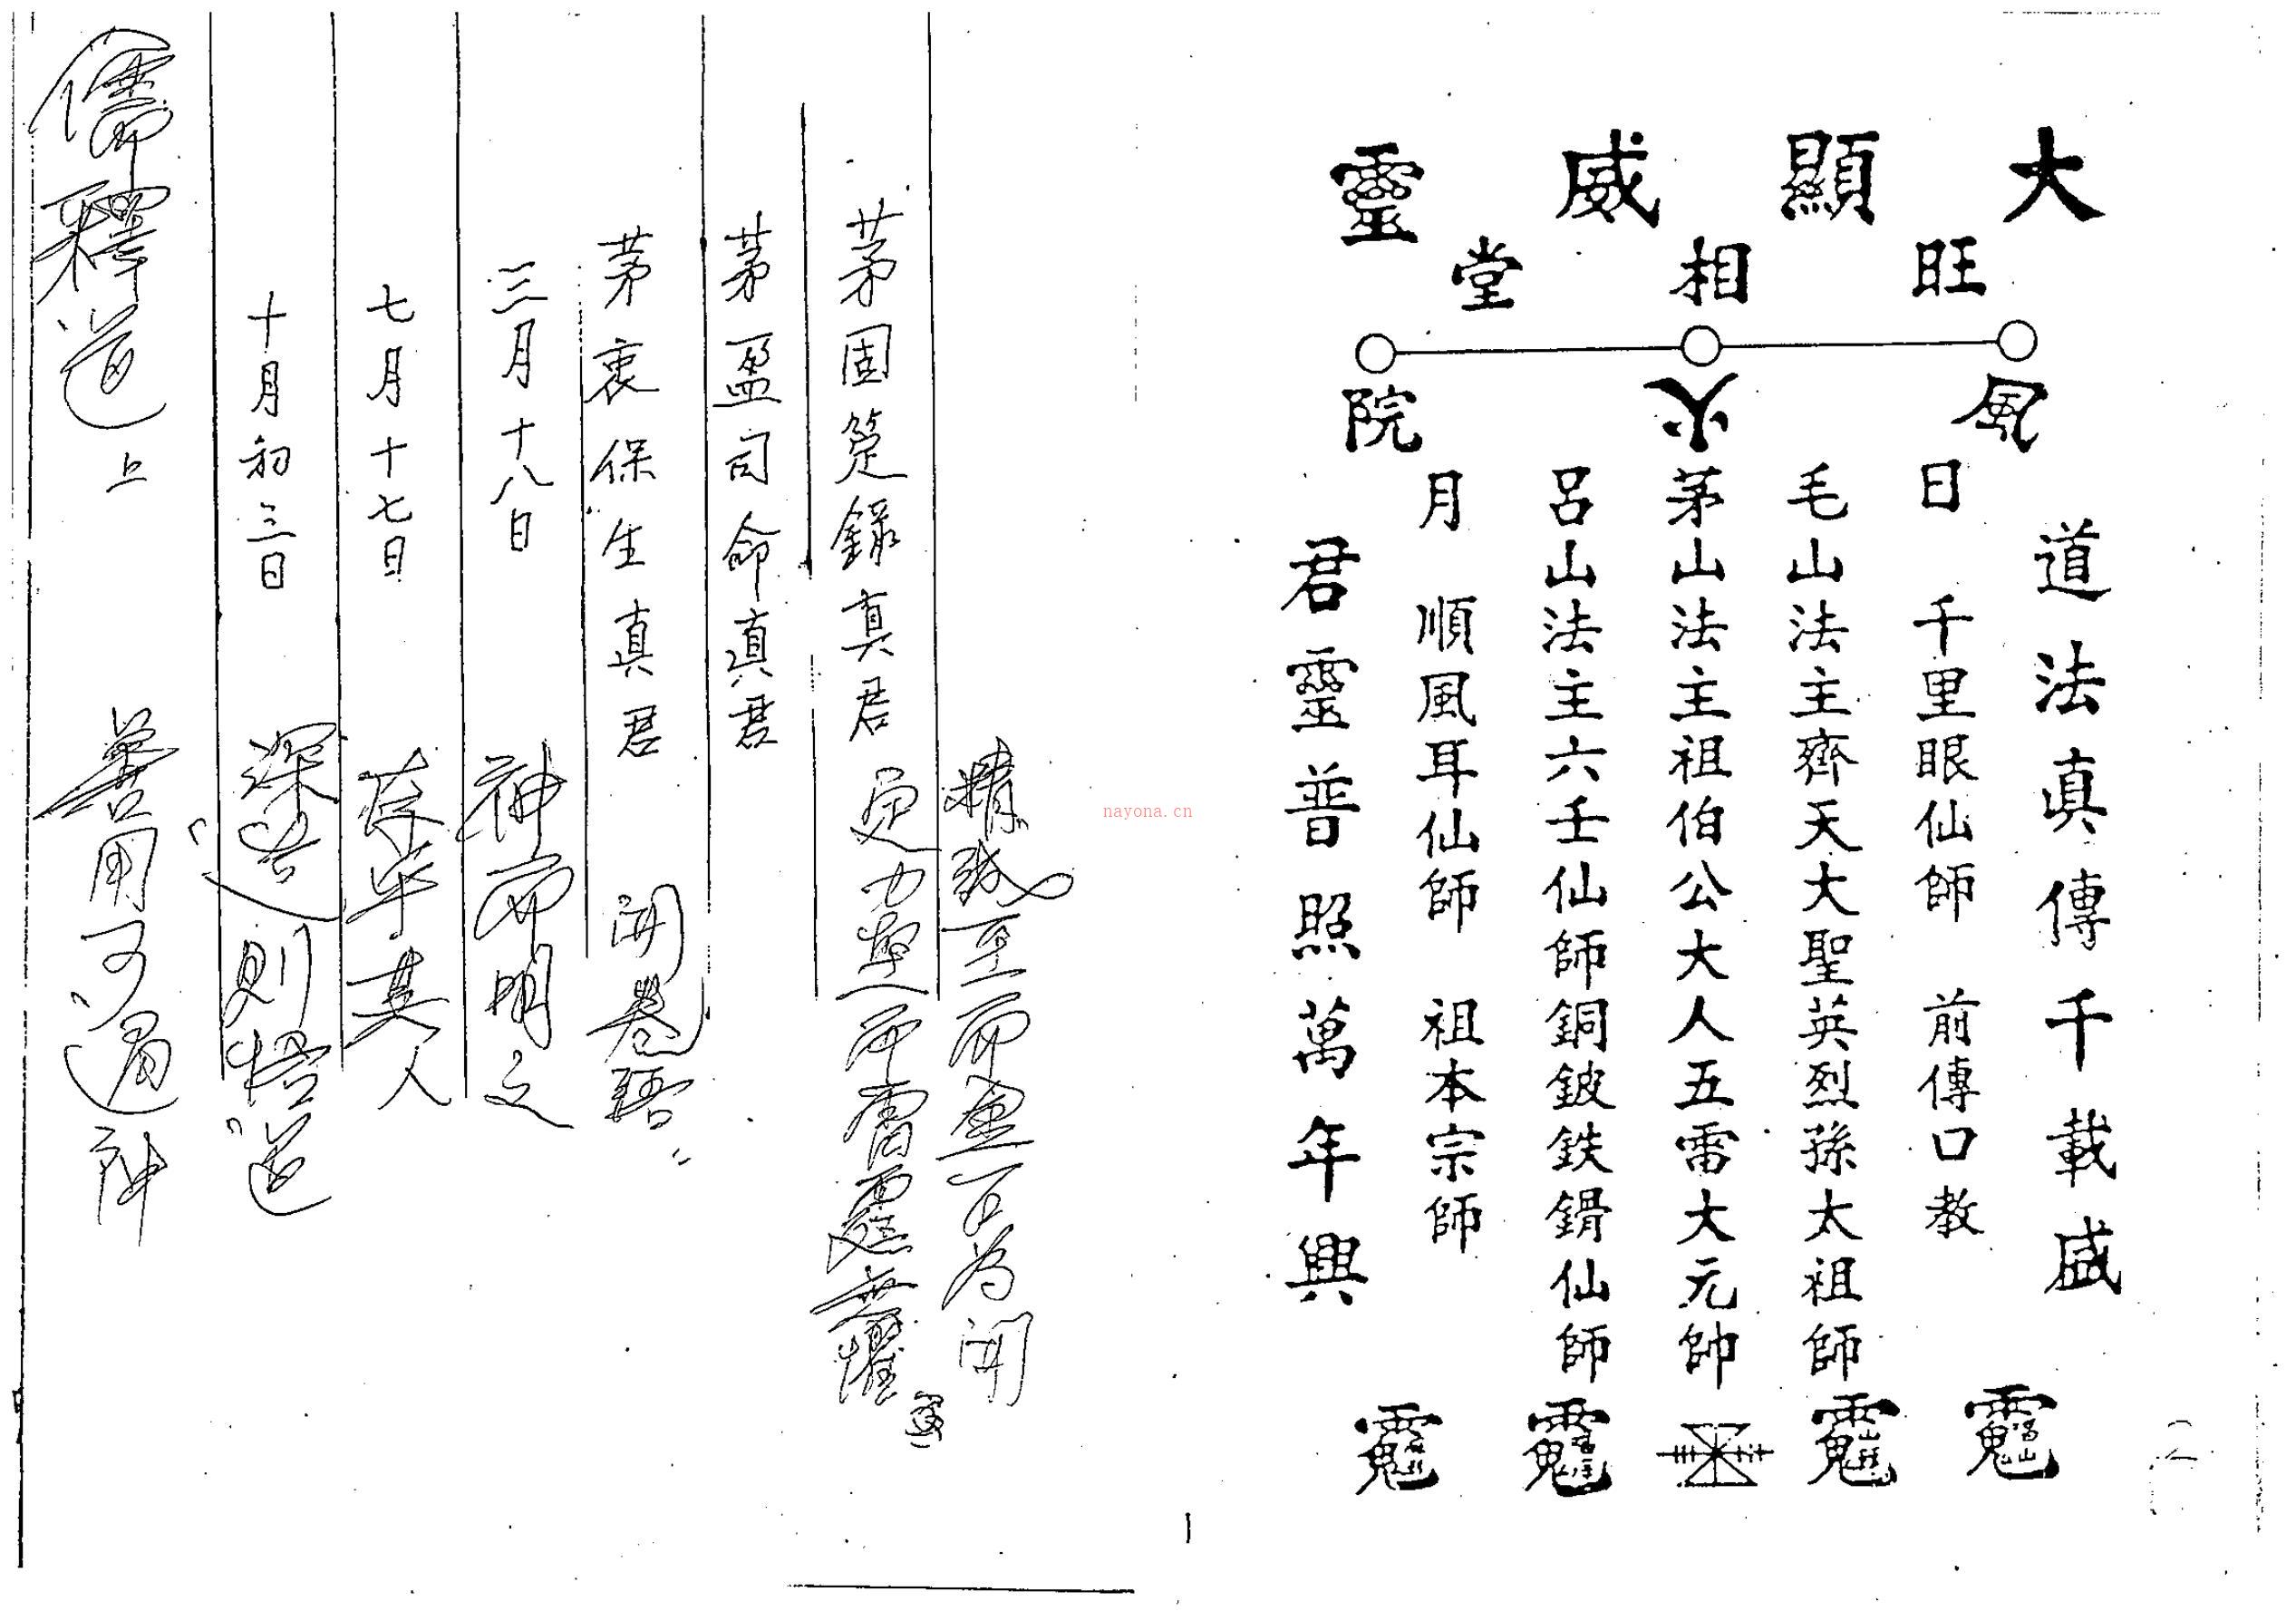 大顯威靈
旺相堂
風火院
道法真傳千載盛
日 千里眼仙師 前傳口教
毛山法主齊天大聖英烈孫太祖師
茅山法主祖伯公大人五雷大元帥
呂山法主六壬仙師銅鈹鉄鎖仙師
月 順風耳仙師 祖本宗師
君靈普照萬年興
nayona.cn
精誠至而金石為開
茅固 錄真君
茅盈司命真君
茅衷保生真君
開卷
三月十八日
神而明之
七月十七日
存乎其人
十月初三日
則悟道
儒釋道 上
善用可通神